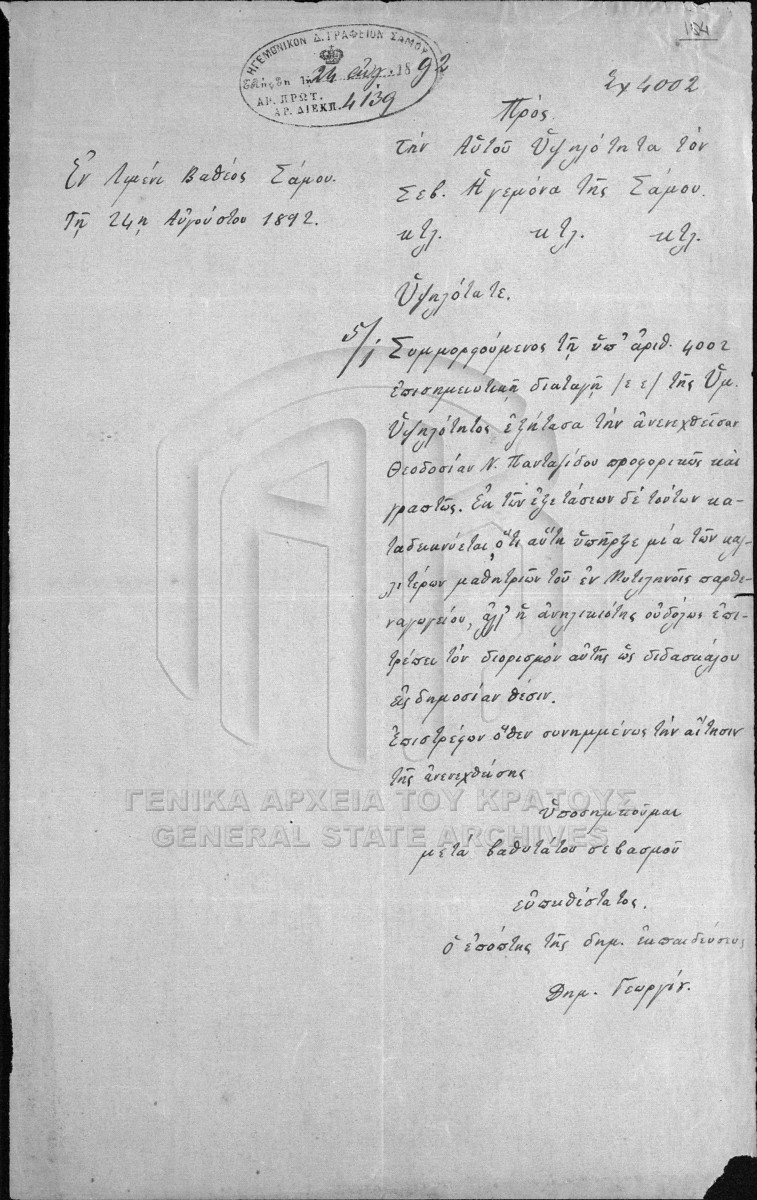 154
ΗΓΕΜΟΝΙΚΟΝ Δ. ΓΡΑΦΕΙΟΝ ΣΑΜΟΥ
Ἐλήφθη τῇ 24 αὐγ. 1892
ΑΡ. ΠΡΩΤ.
ΑΡ. ΔΙΕΚΠ. 4139
Σχ 4002
Πρὸς
τὴν Αὐτοῦ Ὑψηλότητα τὸν
Σεβ. Ἡγεμόνα τῆς Σάμου.
κτλ. κτλ. κτλ.
Ἐν Λιμένι Βαθέος Σάμου.
Τῇ 24ῃ Αὐγούστου 1892.
Ὑψηλότατε.
Συμμορφούμενος τῇ ὑπ' ἀριθ. 4002
ἐπισημειωτικῇ διαταγῇ /ε ε/ τῆς Ὑμ.
Ὑψηλότητος ἐξήτασα τὴν ἀνενεχθεῖσαν
Θεοδοσίαν Ν. Πανταζίδου προφορικῶς καὶ
γραπτῶς. Ἐκ τῶν ἐξετάσεων δὲ τούτων κα-
ταδεικνύεται, ὅτι αὕτη ὑπῆρξε μία τῶν καλ-
λιτέρων μαθητριῶν τοῦ ἐν Μυτιλήνῃ παρθε-
ναγωγείου, ἀλλ' ἡ ἀνηλικιότης οὐδόλως ἐπι-
τρέπει τὸν διορισμὸν αὐτῆς ὡς διδασκάλου
εἰς δημοσίαν θέσιν.
Ἐπιστρέφων ὅθεν συνημμένως τὴν αἴτησιν
τῆς ἀνενεχθείσης
ὑποσημειοῦμαι
μετὰ βαθυτάτου σεβασμοῦ
εὐπειθέστατος.
ὁ ἐπόπτης τῆς δημ. ἐκπαιδεύσεως
Δημ. Γεωργιάδ.
ΓΕΝΙΚΑ ΑΡΧΕΙΑ ΤΟΥ ΚΡΑΤΟΥΣ
GENERAL STATE ARCHIVES